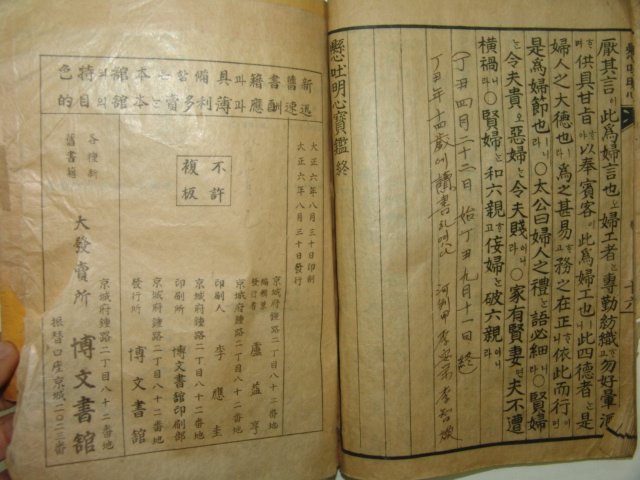 厭其言이此爲婦言也오婦工者는專勤紡績고勿好暈酒
고供具甘旨야以奉賓客이此爲婦工也니此四德者는是
婦人之大德也라爲之甚易고務之在正니依此而行면
是爲婦節也니라○太公曰婦人之禮는語必細니라○賢婦
는令夫貴오惡婦는令夫賤이니라○家有賢妻면夫不遭
橫禍니라○賢婦는和六親고佞婦는破六親이니라
丁丑四月二十二日 始 丁丑九月十一日 終
丁丑年十四歲에讀書
懸吐明心寶鑑終
新舊書籍具備할는本館의特色
迅速酬應과薄利多賣는本館의目的
大正六年八月三十日印刷
大正六年八月三十日發行
不許
複板
京城府鍾路二丁目八十二番地
編輯兼
發行者 盧益亨
京城府鍾路二丁目八十二番地
印刷人 李應奎
京城府鍾路二丁目八十二番地
印刷所 博文書館印刷部
京城府鍾路二丁目八十二番地
發行所 博文書館
京城府鍾路二丁目八十二番地
各種新
舊書籍
大發賣所 博文書館
振替口座京城二〇二三番